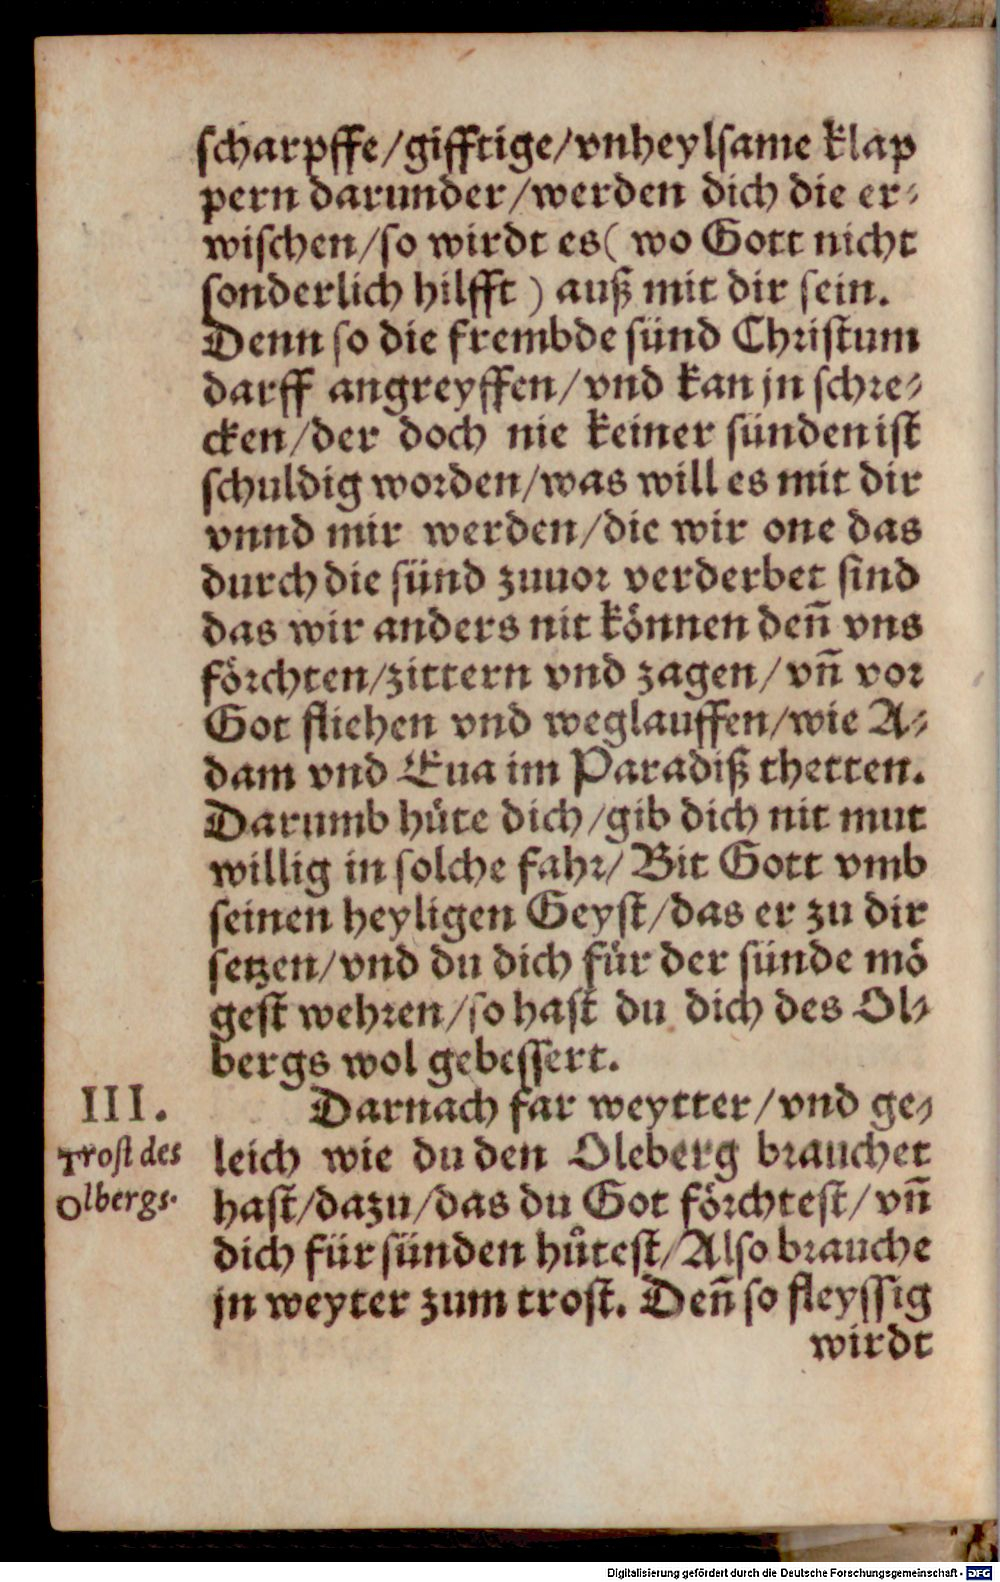 scharpffe/gifftige/vnheylsame klap
pern darunder/werden dich die er⸗
wischen/so wirdt es( wo Gott nicht
sonderlich hilfft ) auß mit dir sein.
Denn so die frembde sünd Christum
darff angreyffen/vnd kan jn schre⸗
cken/der doch nie keiner sünden ist
schuldig worden/was will es mit dir
vnnd mir werden/die wir one das
durch die sünd zuuor verderbet sind
das wir anders nit können deñ vns
förchten/zittern vnd zagen/vñ vor
Got fliehen vnd weglauffen/wie A⸗
dam vnd Eua im Paradiß thetten.
Darumb hüte dich/gib dich nit mut
willig in solche fahr/Bit Gott vmb
seinen heyligen Geyst/das er zu dir
setzen/vnd du dich für der sünde mö
gest wehren/so hast du dich des Ol⸗
bergs wol gebessert.
III.
Trost des
Olbergs.
Darnach far weytter/vnd ge⸗
leich wie du den Oleberg brauchet
hast/dazu/das du Got förchtest/vñ
dich für sünden hůtest/Also brauche
jn weyter zum trost. Deñ so fleyssig
wirdt
Digitalisierung gefördert durch die Deutsche Forschungsgemeinschaft - DFG